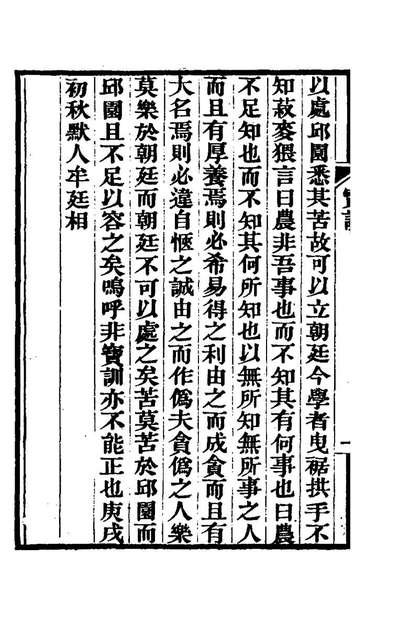 以處邱園悉其苦故可以立朝廷今學者曳裾拱手不
知菽麥猥言曰農非吾事也而不知其有何事也曰農
不足知也而不知其何所知也以無所知無所事之人
而且有厚養焉則必希易得之利由之而成貪而且有
大名焉則必違自愜之誠由之而作僞夫貪僞之人樂
莫樂於朝廷而朝廷不可以處之矣苦莫苦於邱園而
邱園且不足以容之矣嗚呼非寶訓亦不能正也庚戌
初秋默人牟廷相
寶訓
一